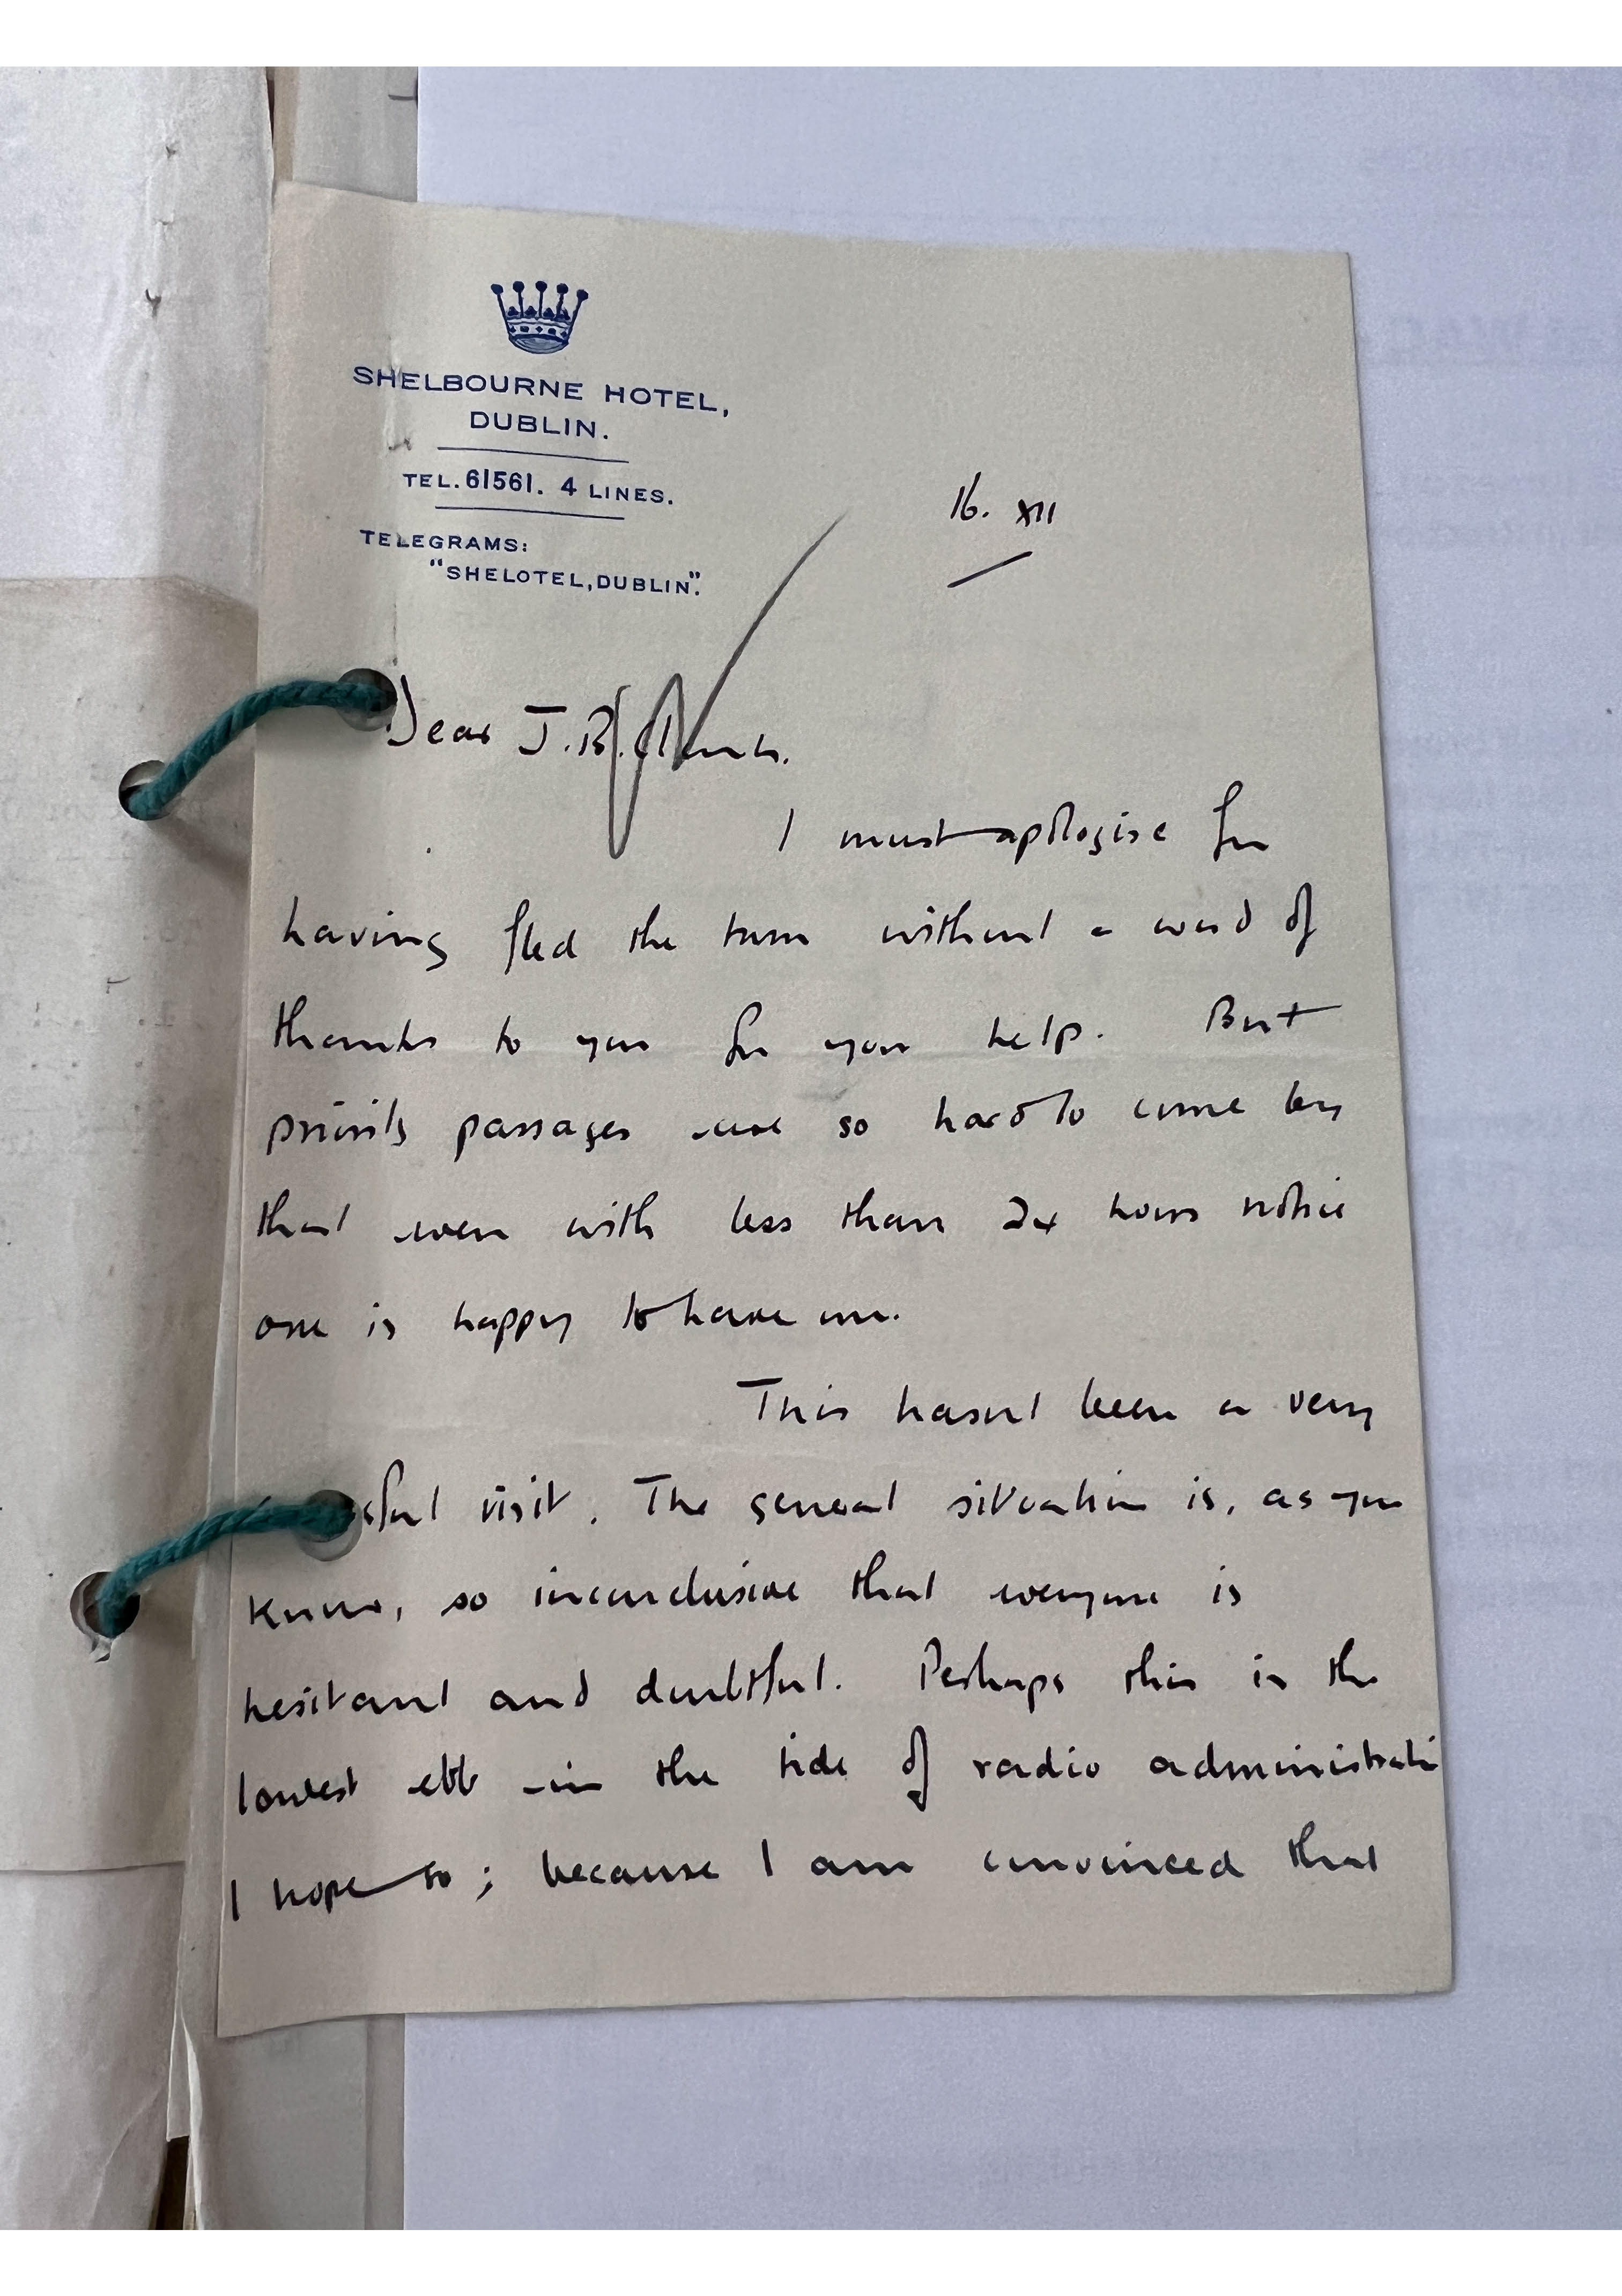 SHELBOURNE HOTEL,
DUBLIN.
TEL. 61561. 4 LINES.
TELEGRAMS:
"SHELOTEL, DUBLIN".
16. XII
Dear J.B. Clark.
I must apologise for
having fled the town without a word of
thanks to you for your help. But
priority passages are so hard to come by
that even with less than 24 hours notice
one is happy to have one.
This hasn't been a very
visit. The general situation is, as you
know, so inconclusive that everyone is
hesitant and doubtful. Perhaps this is the
lowest ebb in the tide of radio administrati
I hope so; because I am convinced that